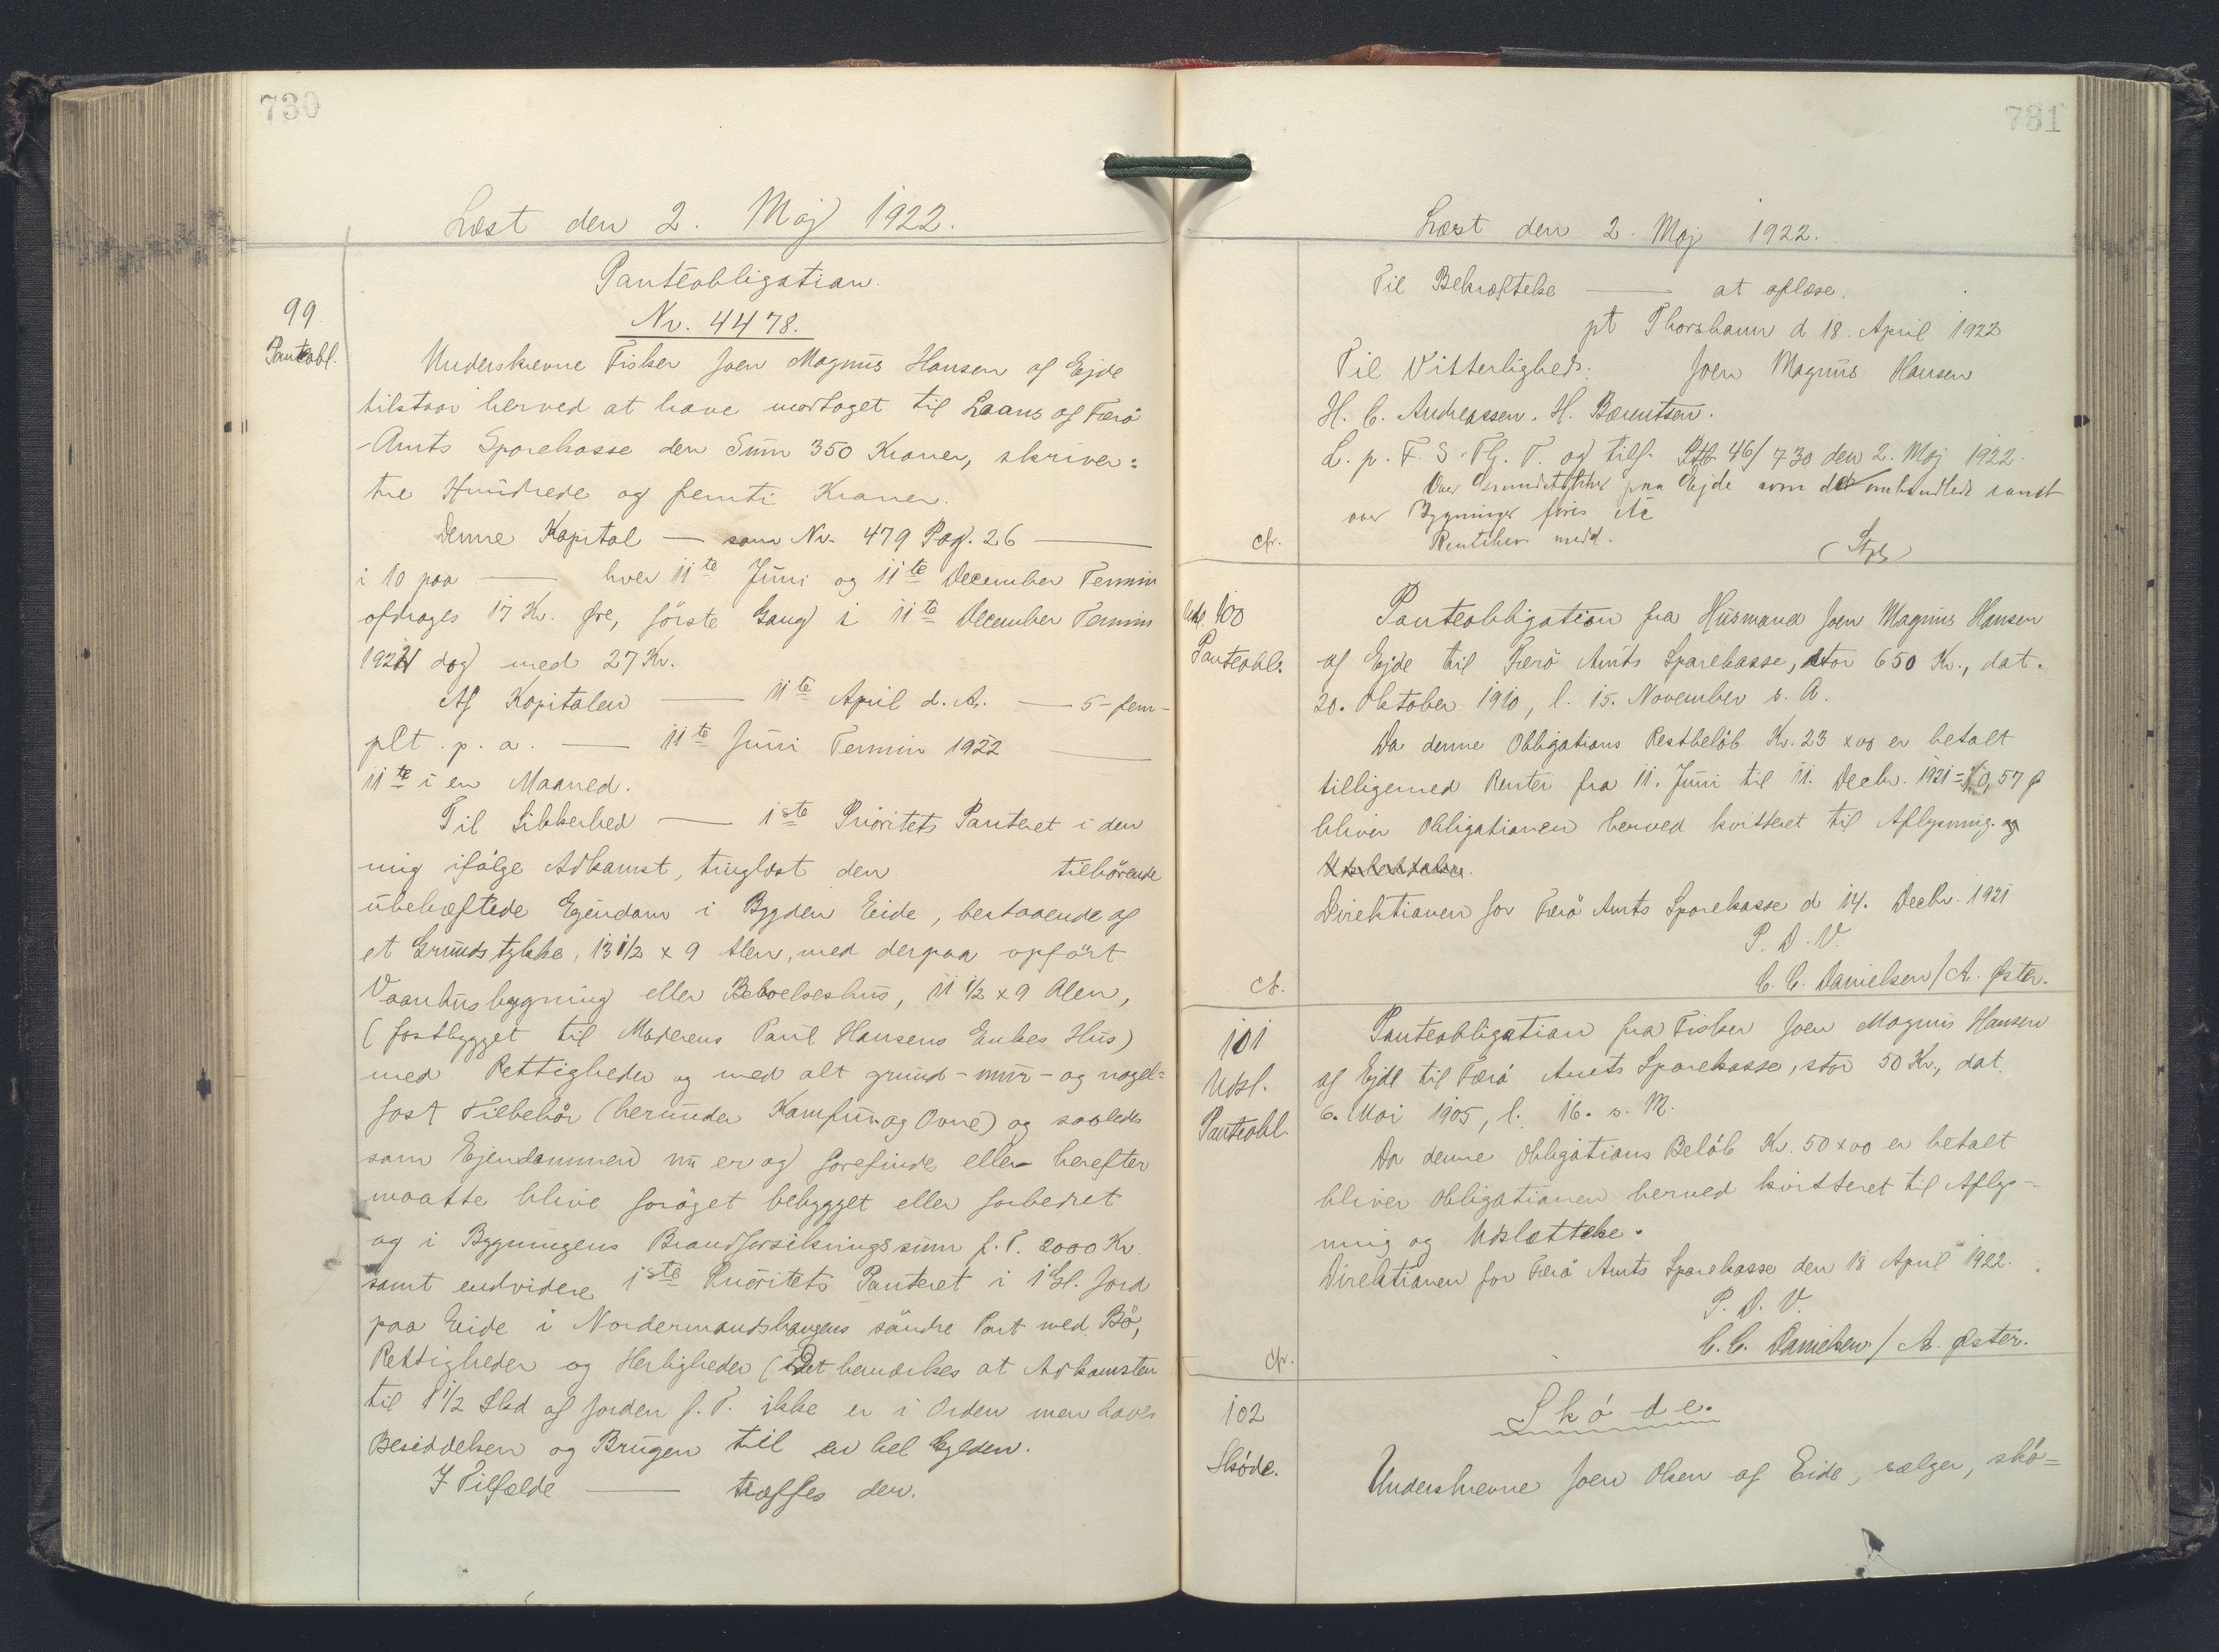 730
Læst den 2. Maj 1922.
Panteobligation.
99
Nr. 4478.
Panteobl.
Underskrevne Fisker Joen Magnus Hansen af Ejde
tilstaar herved at have modtaget til Laans af Færö
Amts Sparekasse den Sum 350 Kroner, skriver:
tre Hundrede og femti Kroner.
Denne Kapital — som Nr. 479 Pag. 26 —
i 10 paa — hver 11te Juni og 11te December Termin
afdrages 17 Kr. Øre, förste Gang i 11te December Termin
1922 dog med 27 Kr.
Af Kapitalen — 11te April d. A. — 5 - fem -
pCt. p. a. — 11te Juni Termin 1922 —
11te i en Maaned.
Til Sikkerhed — 1ste Prioritets Panteret i den
mig ifölge Adkomst, tinglæst den tilhörende
ubehæftede Ejendom i Bygden Eide, bestaaende af
et Grundstykke, 13 1/2 x 9 Alen, med derpaa opfört
Vaanhusbygning eller Beboelseshus, 11 1/2 x 9 Alen,
(fastbygget til Moderens Paul Hansens Enkes Hus)
med Rettigheder og med alt grund- mur- og nagel=
fast Tilbehör (herunder Komfur og Ovne) og saaledes
som Ejendommen nu er og forefindes eller herefter
maatte blive foröget bebygget eller forbedret
og i Bygningens Brandforsikringssum p. T. 2000 Kr.
samt endvidere 1ste Prioritets Panteret i 1 Gl. Jord
paa Eide i Nordermandshaugens söndre Part med Bö,
Rettigheder og Herligheder (Det bemærkes at Adkomsten
til 1 1/2 Skd af Jorden p. T. ikke er i Orden men haves
Besiddelsen og Brugen til en hel Gylden.
I Tilfælde — træffes den.
731
Læst den 2. Maj 1922.
Til Bekræftelse — at aflæse.
pt Thorshavn d 18. April 1922
Til Vitterlighed: Joen Magnus Hansen
H. C. Andreassen. H. Bærentsen.
L. p. F. S. Th. T. og tilf. Ptb. 46/730 den 2. Maj 1922.
Over Grundstykker paa Ejde som det omhandlede samt
over Bygninger føres ikke
Realreg. medd.
Cfr.
Uds. 100
Panteobl.
Panteobligation fra Husmand Joen Magnus Hansen
af Ejde til Færö Amts Sparekasse, stor 650 Kr., dat.
20. Oktober 1910, l. 15. November s. A.
Da denne Obligations Restbelöb Kr. 23 x 00 er betalt
tilligemed Renter fra 11. Juni til 11. Decbr. 1921 = Kr 0,57 Ø
bliver Obligationen herved kvitteret til Aflysning. og
Udslettelse.
Direktionen for Færö Amts Sparekasse d 14. Decbr. 1921
P. D. V.
C. C. Danielsen / A. Øster.
Cfr.
101
Udsl.
Panteobl.
Panteobligation fra Fisker Joen Magnus Hansen
af Ejde til Færö Amts Sparekasse, stor 50 Kr., dat.
6. Mai 1905, l. 16. s. M.
Da denne Obligations Belöb Kr. 50 x 00 er betalt
bliver Obligationen herved kvitteret til Aflys-
ning og Udslettelse.
Direktionen for Færö Amts Sparekasse den 18 April 1922.
P. D. V.
C. C. Danielsen / A. Øster.
Cfr.
102
Skøde.
Sköde.
Underskrevne Joen Olsen af Eide, sælger, skö=